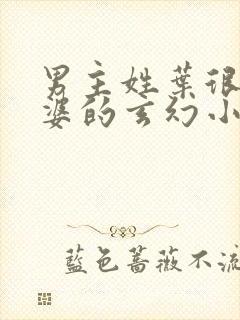 男主姓葉很
婆的玄幻小
藍色薔薇不流